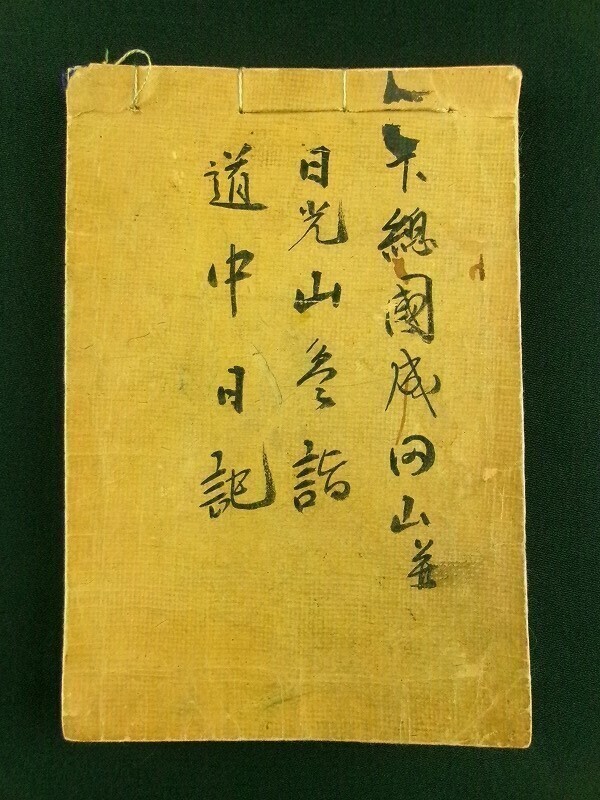 下總國成田山並
日光山参詣
道中日記